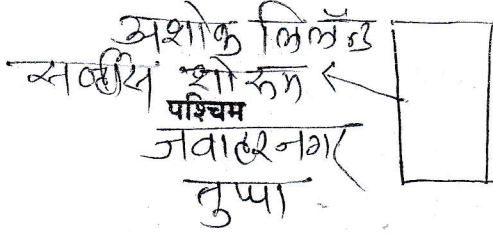 अशोक लिलॅन्ड
सर्व्हीस शोरूम
पश्चिम
जवाहरनगर
तुप्पा